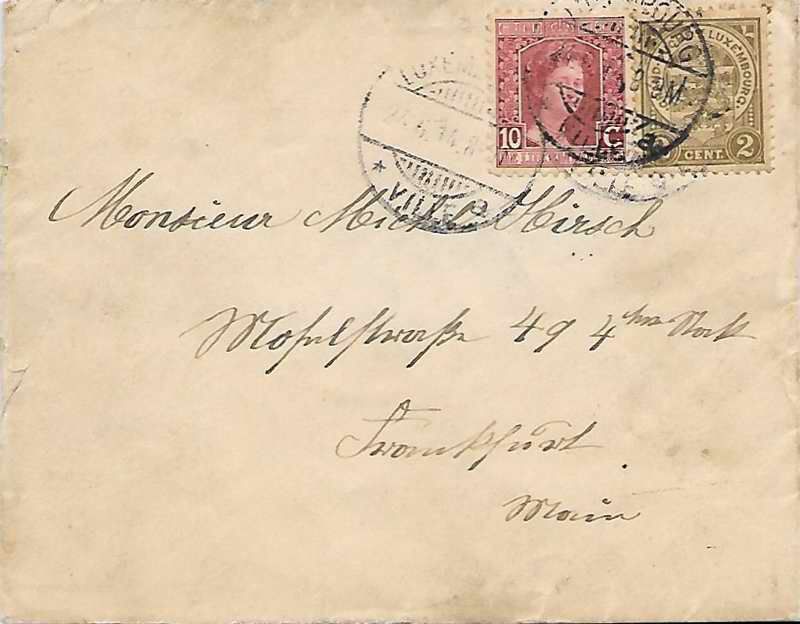 LUXEMBOURG
10 C
LUXEMBOURG
2 CENT.
VILLE
Monsieur Michel Hirsch
Moselstraße 49 4ter Stock
Frankfurt
Main